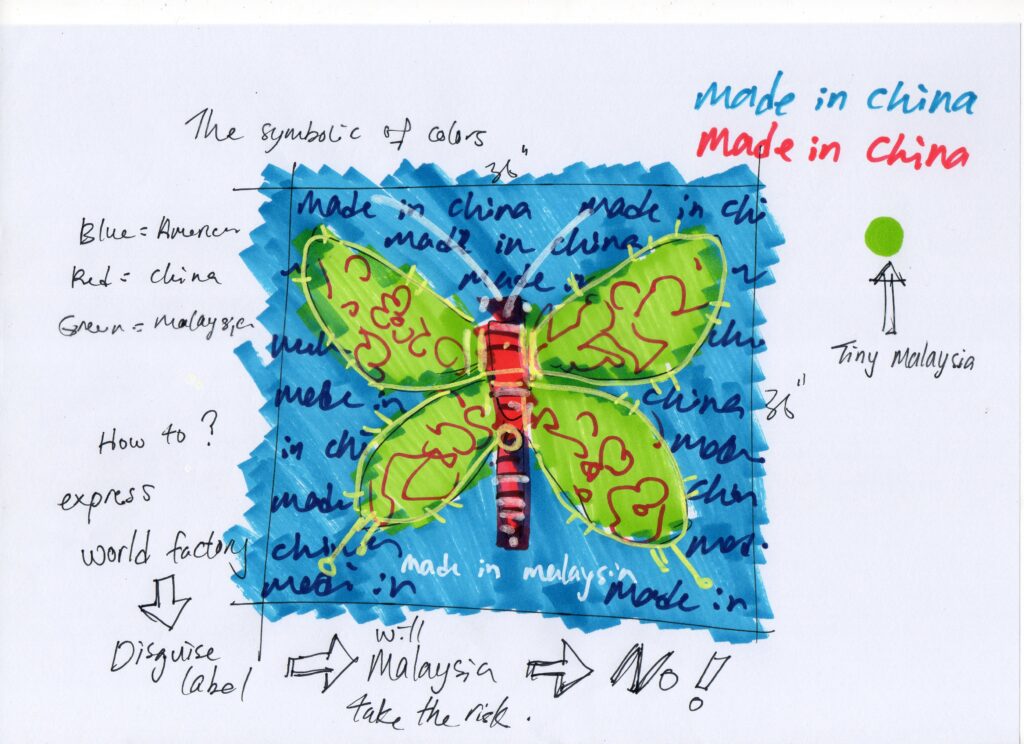 made in china
made in china
The symbolic of colors
36"
Blue = American
Red = china
Green = malaysia
made in china
made in chi
made in china
made in
made in
china
in chi
made
chin
china
made in malaysia
made in
made in
36"
Tiny malaysia
How to ?
express
world factory
Disguise
label
will
Malaysia
take the risk.
No!